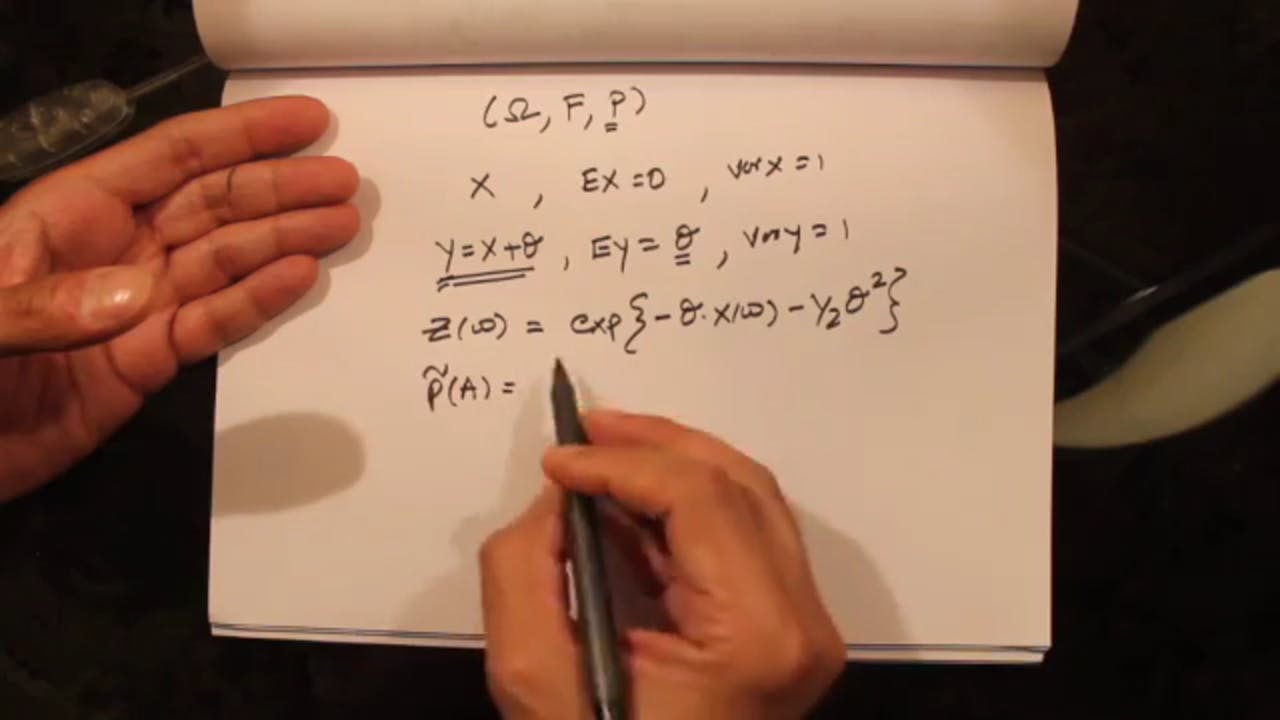 (Ω, F, P)
X , EX = 0 , var X = 1
Y = X + θ , EY = θ , var Y = 1
Z(ω) = exp{ - θ · X(ω) - 1/2 θ²}
P̃(A) =